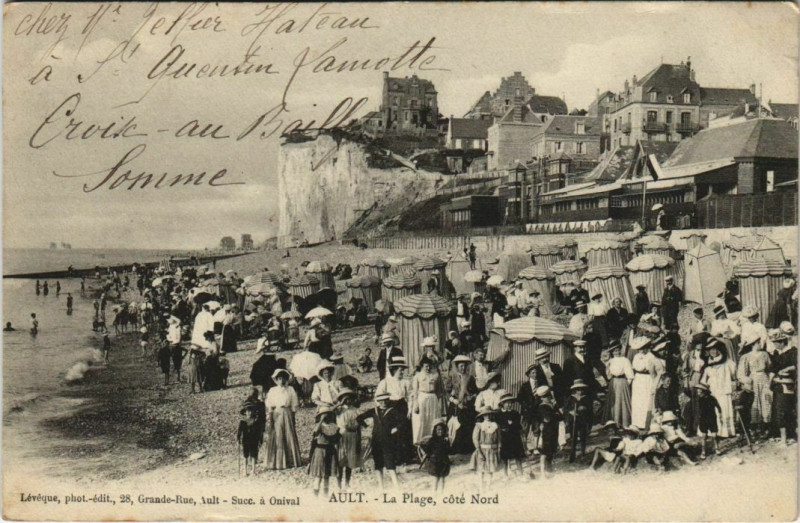 chez Mr Pellier Hateau
à St Quentin Lamotte
Croix-au Bailly
Somme
Lévêque, phot.-édit., 28, Grande-Rue, Ault - Succ. à Onival
AULT. - La Plage, côté Nord